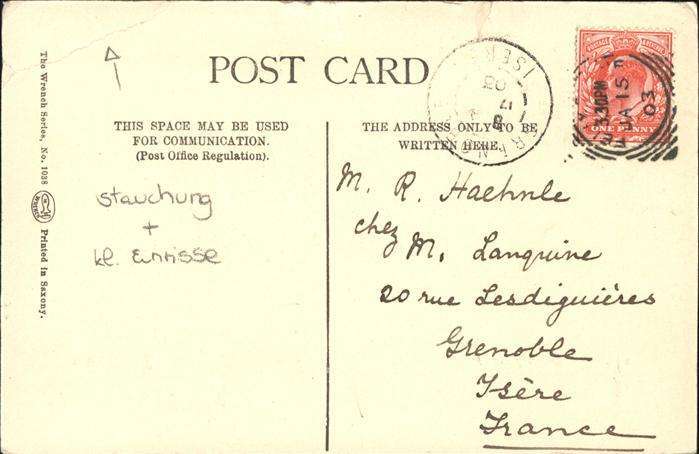 POST CARD
THIS SPACE MAY BE USED
FOR COMMUNICATION.
(Post Office Regulation).
THE ADDRESS ONLY TO BE
WRITTEN HERE.
The Wrench Series, No. 1038
Printed in Saxony.
Stauchung
+
kl. Einrisse
M. R. Haehnle
chez M. Lanquine
20 rue Lesdiguières
Grenoble
Isère
France
ONE PENNY
3.30PM
JA 15
03
ISERE
17
03